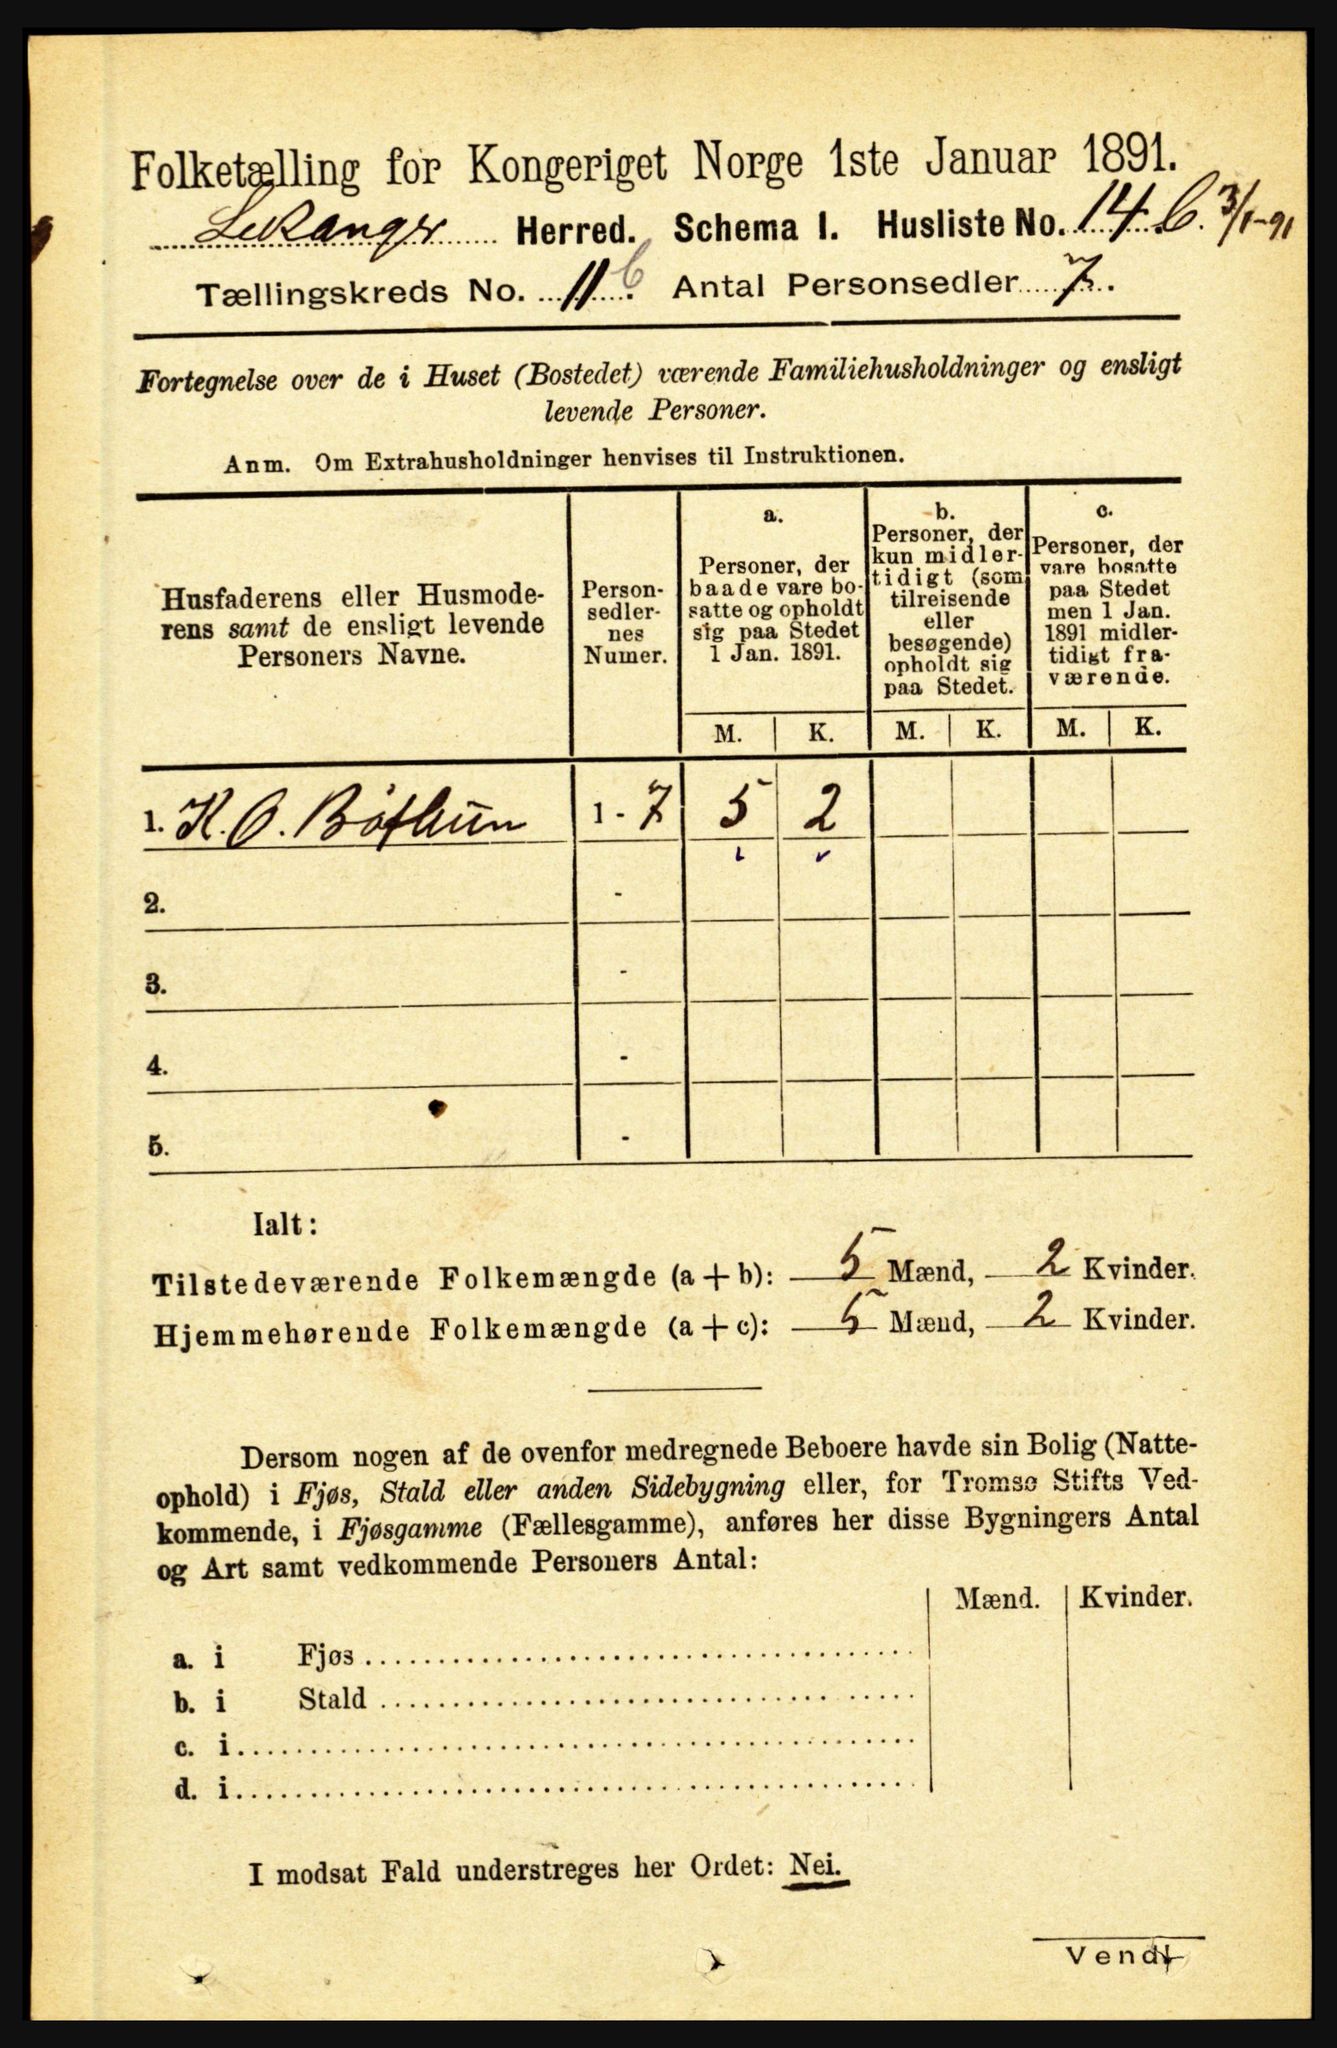 Folketælling for Kongeriget Norge 1ste Januar 1891.
Leikanger Herred. Schema I. Husliste No. 14 b. 3/1-91
Tællingskreds No. 11 b. Antal Personsedler 7.
Fortegnelse over de i Huset (Bostedet) værende Familiehusholdninger og ensligt
levende Personer.
Anm. Om Extrahusholdninger henvises til Instruktionen.
Husfaderens eller Husmode-
rens samt de ensligt levende
Personers Navne.
Person-
sedler-
nes
Numer.
a.
Personer, der
baade vare bo-
satte og opholdt
sig paa Stedet
1 Jan. 1891.
b.
Personer, der
kun midler-
tidigt (som
tilreisende
eller
besøgende)
opholdt sig
paa Stedet.
c.
Personer, der
vare bosatte
paa Stedet
men 1 Jan.
1891 midler-
tidigt fra-
værende.
M. K. M. K. M. K.
1. K. O. Bøthun 1 - 7 5 2
2. -
3. -
4. -
5. -
Ialt:
Tilstedeværende Folkemængde (a + b): 5 Mænd, 2 Kvinder.
Hjemmehørende Folkemængde (a + c): 5 Mænd, 2 Kvinder.
Dersom nogen af de ovenfor medregnede Beboere havde sin Bolig (Natte-
ophold) i Fjøs, Stald eller anden Sidebygning eller, for Tromsø Stifts Ved-
kommende, i Fjøsgamme (Fællesgamme), anføres her disse Bygningers Antal
og Art samt vedkommende Personers Antal:
Mænd. Kvinder.
a. i Fjøs
b. i Stald
c. i
d. i
I modsat Fald understreges her Ordet: Nei.
Vend!